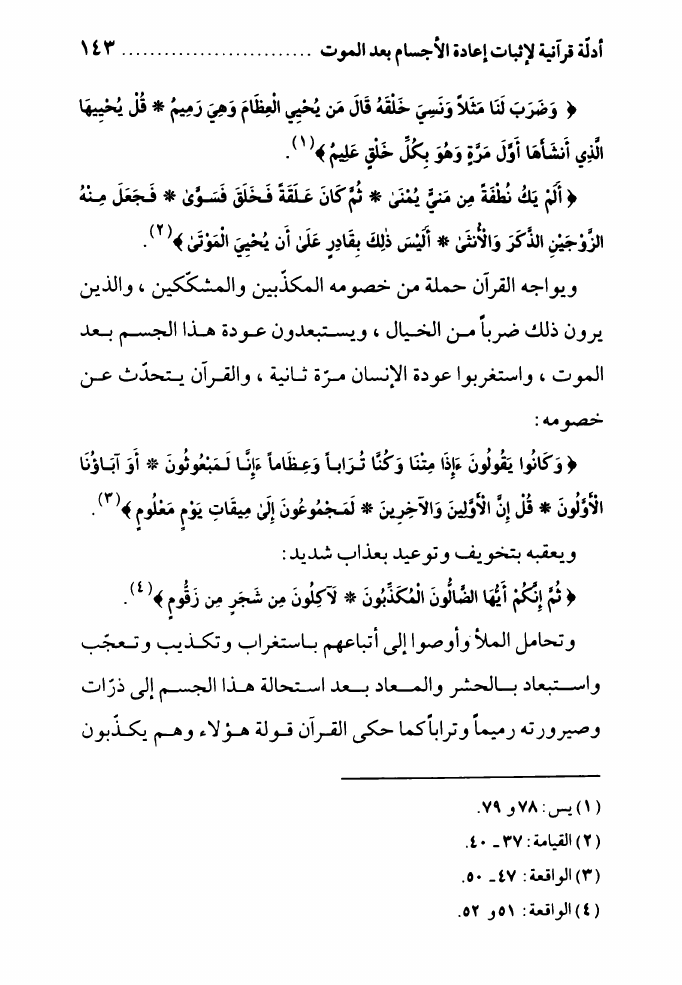 أدلّة قرآنية لإثبات إعادة الأجسام بعد الموت ........................... ١٤٣
﴿ وَضَرَبَ لَنَا مَثَلاً وَنَسِيَ خَلْقَهُ قَالَ مَن يُحْيِي الْعِظَامَ وَهِيَ رَمِيمٌ * قُلْ يُحْيِيهَا
الَّذِي أَنشَأَهَا أَوَّلَ مَرَّةٍ وَهُوَ بِكُلِّ خَلْقٍ عَلِيمٌ ﴾(١).
﴿ أَلَمْ يَكُ نُطْفَةً مِن مَنِيٍّ يُمْنَىٰ * ثُمَّ كَانَ عَلَقَةً فَخَلَقَ فَسَوَّىٰ * فَجَعَلَ مِنْهُ
الزَّوْجَيْنِ الذَّكَرَ وَالْأُنثَىٰ * أَلَيْسَ ذٰلِكَ بِقَادِرٍ عَلَىٰ أَن يُحْيِيَ الْمَوْتَىٰ ﴾(٢).
ويواجه القرآن حملة من خصومه المكذّبين والمشكّكين ، والذين
يرون ذلك ضرباً من الخيال ، ويستبعدون عودة هذا الجسم بعد
الموت ، واستغربوا عودة الإنسان مرّة ثانية ، والقرآن يتحدّث عن
خصومه:
﴿ وَكَانُوا يَقُولُونَ ءَإِذَا مِتْنَا وَكُنَّا تُرَاباً وَعِظَاماً ءَإِنَّا لَمَبْعُوثُونَ * أَوَ آبَاؤُنَا
الْأَوَّلُونَ * قُلْ إِنَّ الْأَوَّلِينَ وَالْآخِرِينَ * لَمَجْمُوعُونَ إِلَىٰ مِيقَاتِ يَوْمٍ مَعْلُومٍ ﴾(٣).
ويعقبه بتخويف وتوعيد بعذاب شديد:
﴿ ثُمَّ إِنَّكُمْ أَيُّهَا الضَّالُّونَ الْمُكَذِّبُونَ * لَآكِلُونَ مِن شَجَرٍ مِن زَقُّومٍ ﴾(٤).
وتحامل الملأ وأوصوا إلى أتباعهم باستغراب وتكذيب وتعجّب
واستبعاد بالحشر والمعاد بعد استحالة هذا الجسم إلى ذرّات
وصيرورته رميماً وتراباً كما حكى القرآن قولة هؤلاء وهم يكذّبون
(١) يس: ٧٨ و ٧٩.
(٢) القيامة: ٣٧ ـ ٤٠.
(٣) الواقعة: ٤٧ ـ ٥٠.
(٤) الواقعة: ٥١ و ٥٢.